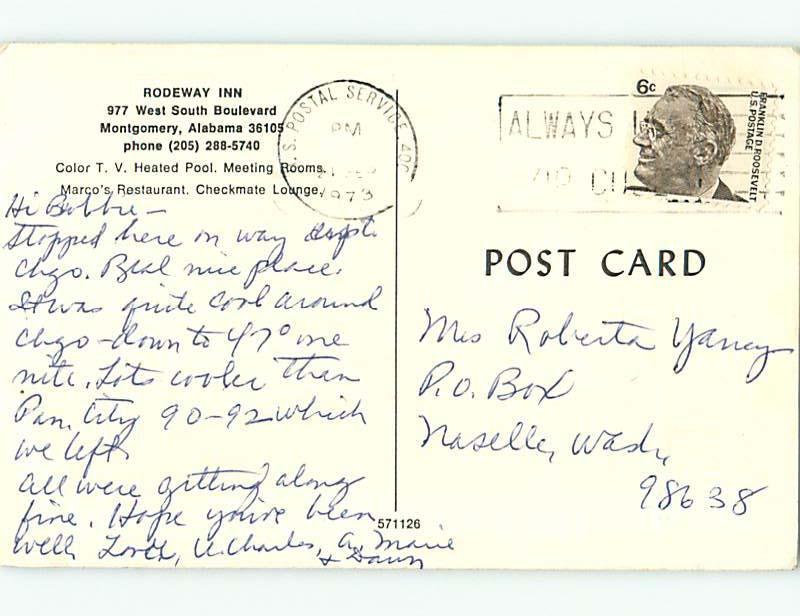 RODEWAY INN
977 West South Boulevard
Montgomery, Alabama 36105
phone (205) 288-5740
Color T. V. Heated Pool. Meeting Rooms.
Marco's Restaurant. Checkmate Lounge.
Hi Bobbie —
Stopped here on way
Chgo. Real nice place.
It was quite cool around
Chgo - down to 47° one
nite. Lots cooler than
Pan. City 90-92 which
we left.
All were getting along
fine. Hope you've been
well. Love, U. Charles, A. Marie
& Dawn
571126
U.S. POSTAL SERVICE
PM
1973
ALWAYS
ZIP
6c
FRANKLIN D. ROOSEVELT
U.S. POSTAGE
POST CARD
Mrs Roberta Yancy
P.O. Box
Naselle, Wash,
98638